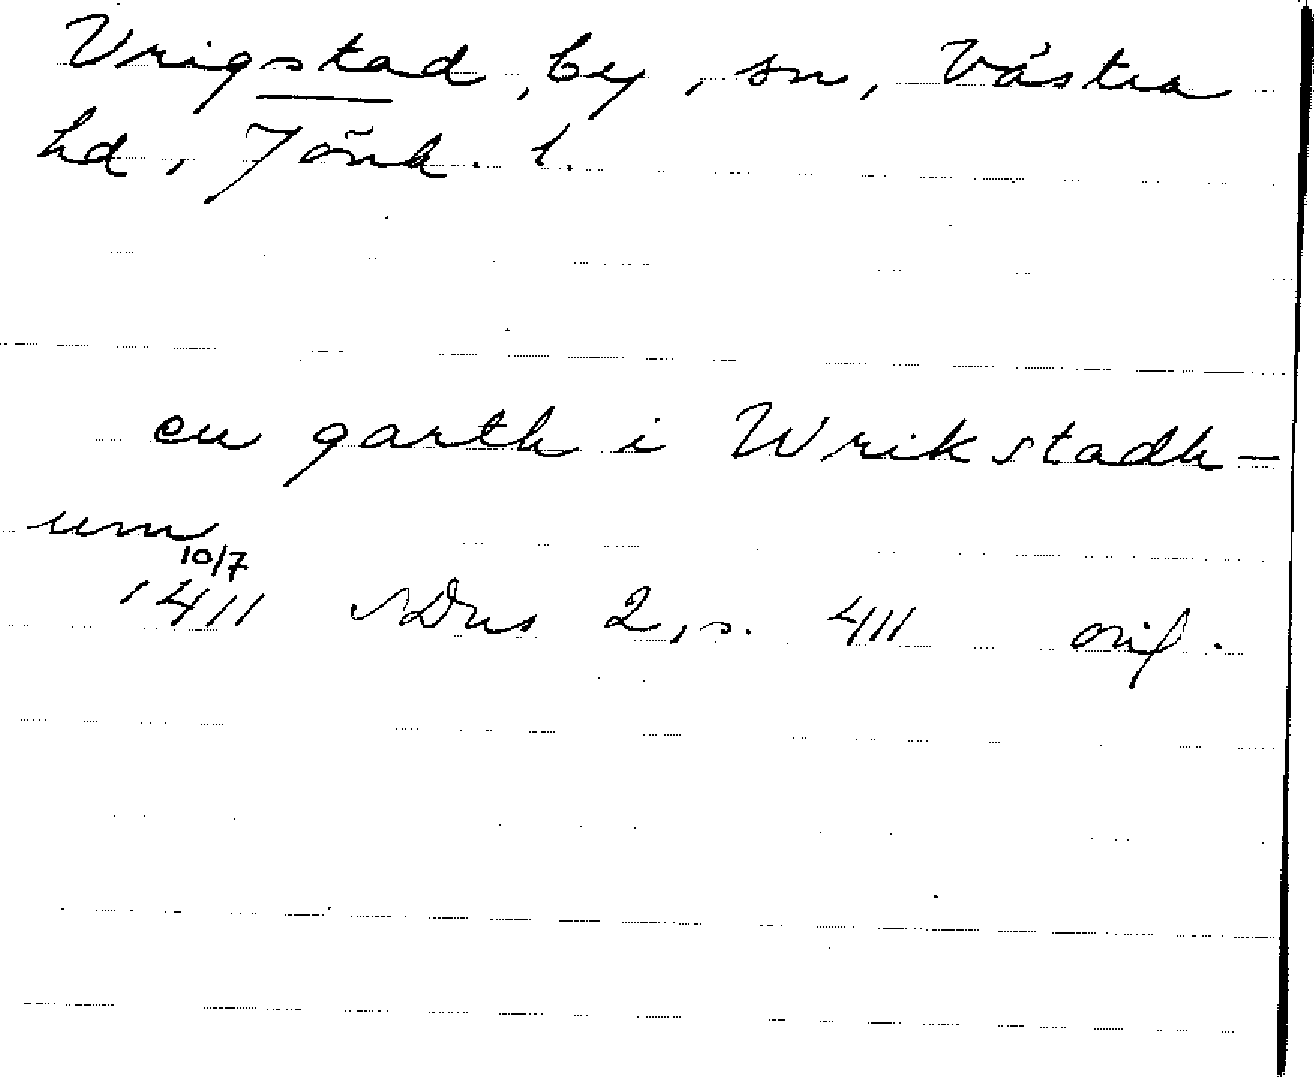 Vrigstad, by, sn, Västra
hd, Jönk. l.
en garth i Wrikstadh-
um
10/7
1411 SDns 2, s. 411 orig.